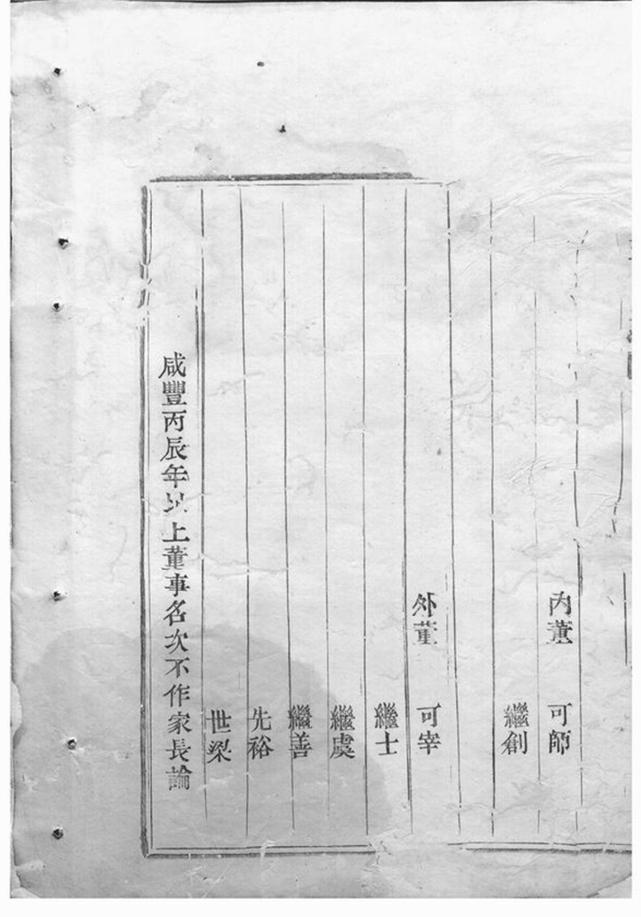 內董 可師
繼創
外董 可宰
繼士
繼虞
繼善
先裕
世梁
咸豐丙辰年以上董事名次不作家長論